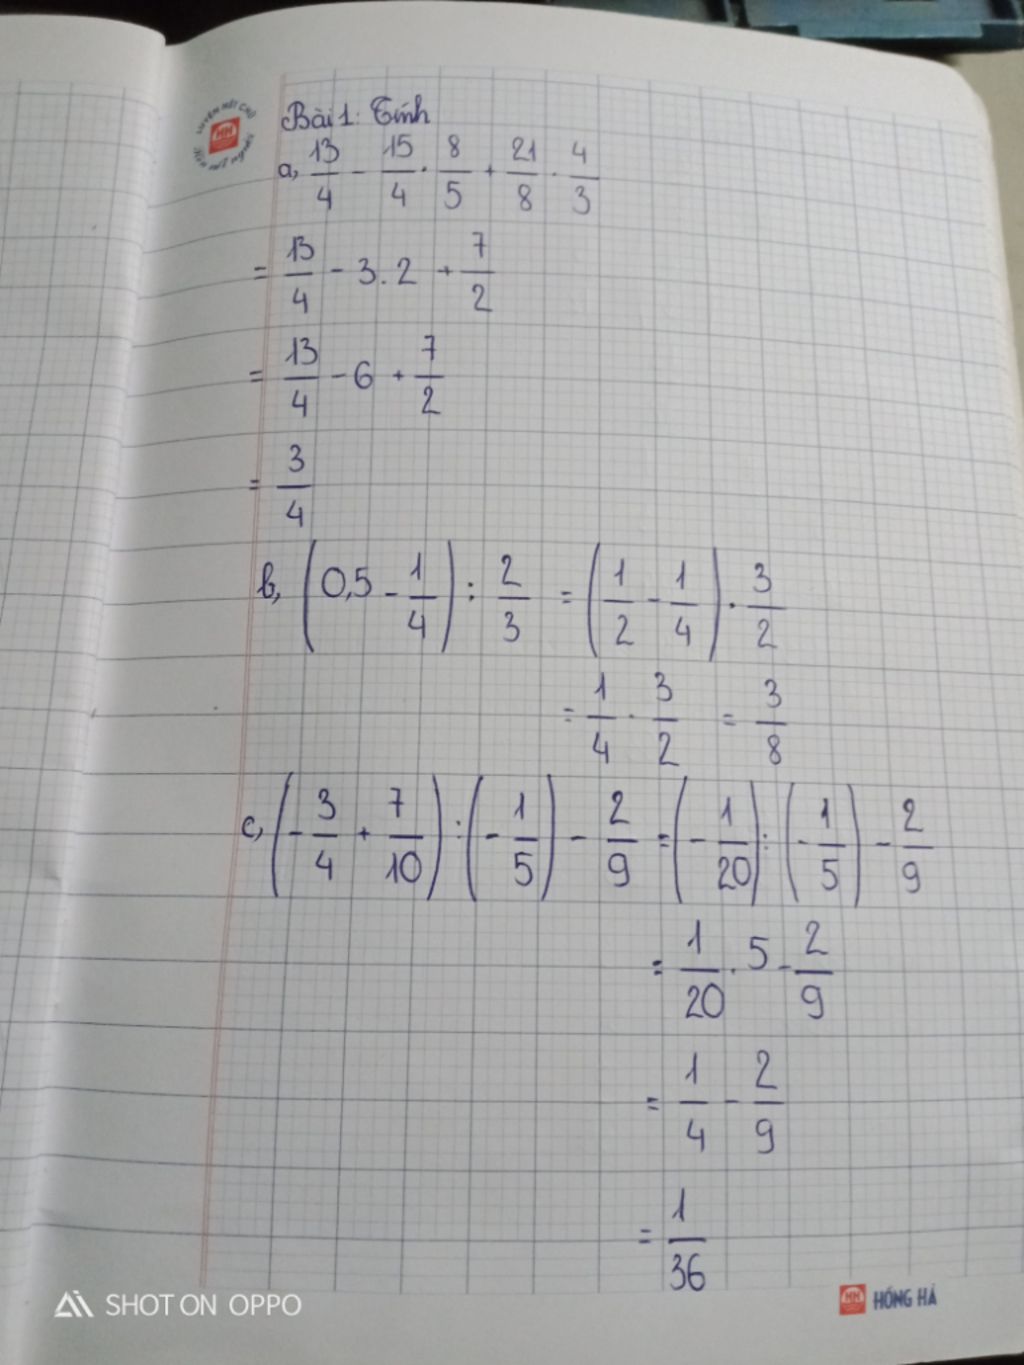 Bài 1: Tính
a, 13/4 - 15/4 . 8/5 + 21/8 . 4/3
= 13/4 - 3.2 + 7/2
= 13/4 - 6 + 7/2
= 3/4
b, (0,5 - 1/4) : 2/3 = (1/2 - 1/4) . 3/2
= 1/4 . 3/2 = 3/8
c, (-3/4 + 7/10) : (-1/5) - 2/9 = (-1/20) : (-1/5) - 2/9
= 1/20 . 5 - 2/9
= 1/4 - 2/9
= 1/36
SHOT ON OPPO
HỒNG HÀ